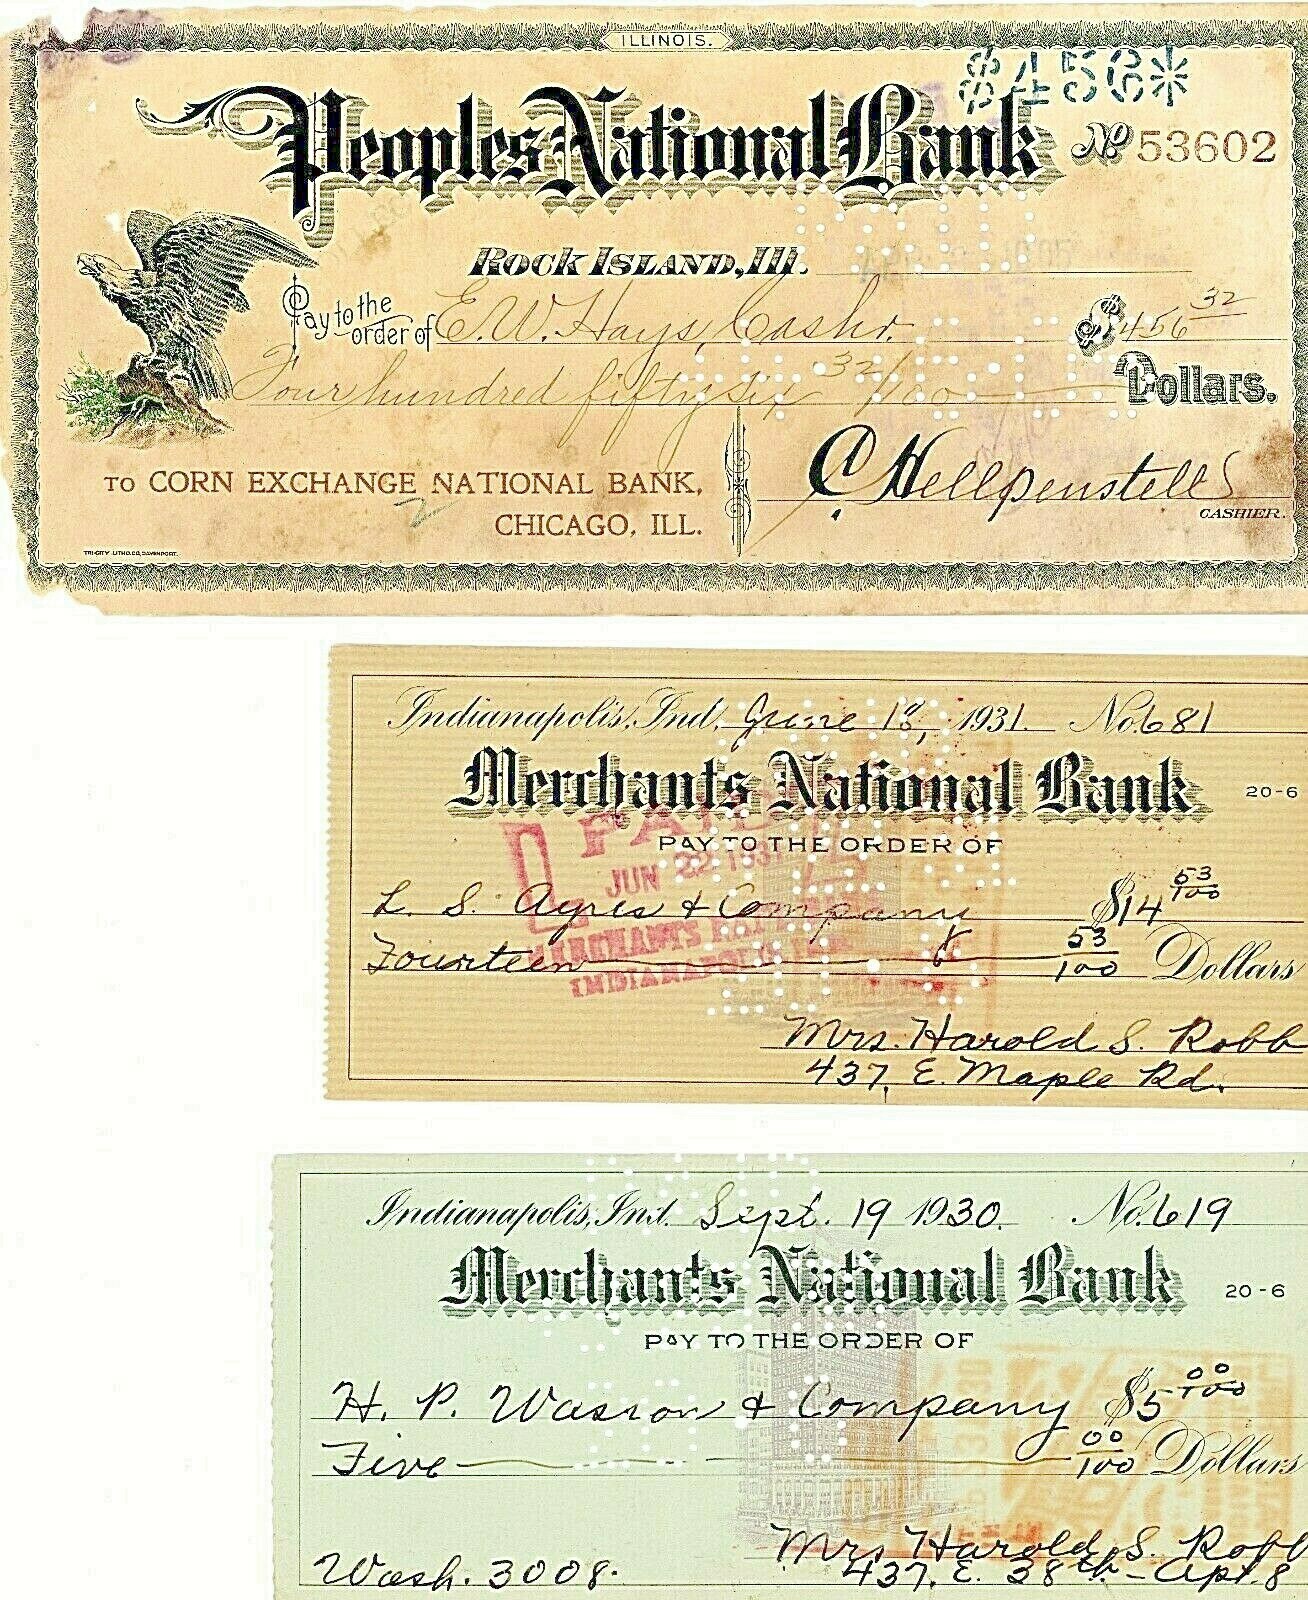 ILLINOIS.
$456*
Peoples National Bank
No 53602
ROCK ISLAND, Ill.
Pay to the order of E. W. Hays, Cashr. $456 32
Four hundred fifty six 32/100 Dollars.
TO CORN EXCHANGE NATIONAL BANK,
CHICAGO, ILL.
C Hellpenstell
CASHIER.
TRI-CITY LITHO. CO. DAVENPORT.
Indianapolis, Ind. June 18, 1931. No. 681
Merchants National Bank 20-6
PAY TO THE ORDER OF
L. S. Ayres & Company $14 53/100
Fourteen & 53/100 Dollars
PAID
JUN 22 1931
MERCHANTS NATIONAL
INDIANAPOLIS IND.
Mrs. Harold S. Robb
437, E. Maple Rd.
Indianapolis, Ind. Sept. 19 1930. No. 619
Merchants National Bank 20-6
PAY TO THE ORDER OF
H. P. Wasson & Company $5 00/100
Five 00/100 Dollars
Mrs Harold S. Robb
Wash. 3008. 437. E. 38th - Apt. 8